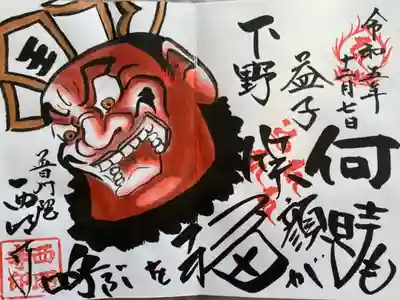 令和五年
十二月七日
何時も
笑顔が
福を
呼ぶ
下野
益子
王
普門院
西明寺